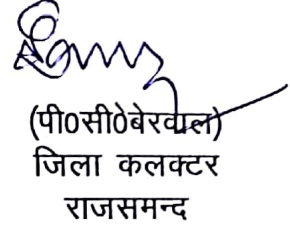 (पी0सी0बेरवाल)
जिला कलक्टर
राजसमन्द